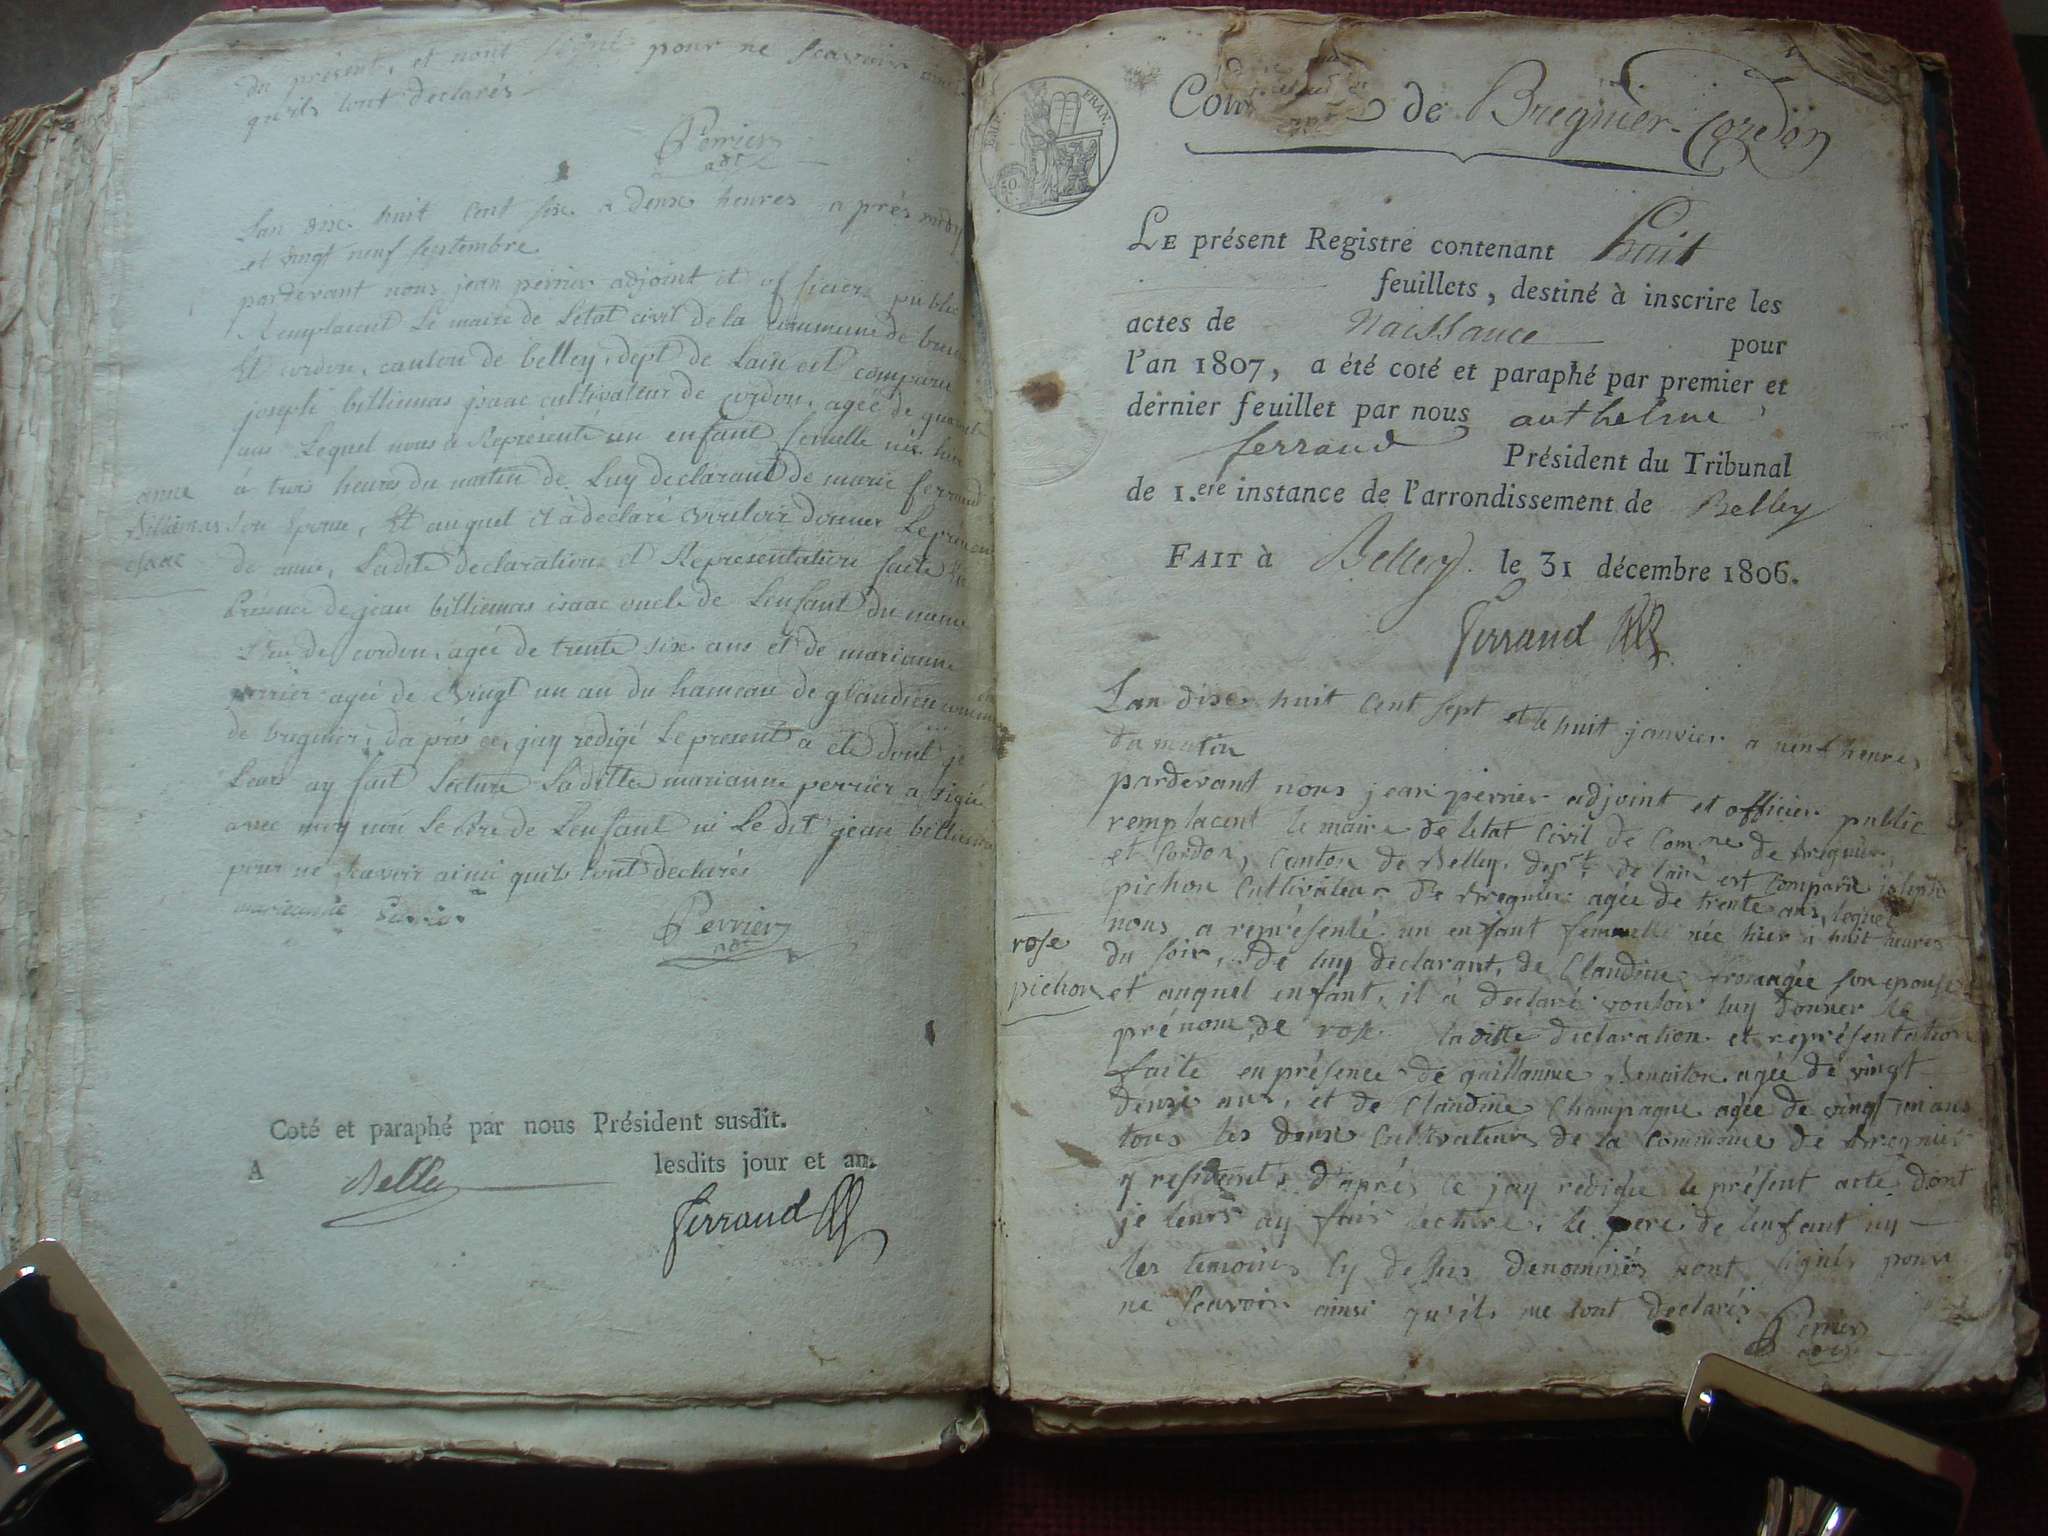 du présent, et nont signé pour ne scavoir
qu'ils lont declarés
Perrier
adt
Lan dix huit cent six a deux heures après midy
et vingt neuf septembre
pardevant nous jean perrier adjoint et officier public
Remplacent Le maire de Letat civil de la commune de
et cordon, canton de belley, dept de Lain est comparu
joseph billiemas isaac cultivateur de cordon, agée de quarante
ans Lequel nous a Représenté un enfant femelle née hier
à trois heures du matin de Luy declarant de marie ferrand
son Epouse, Et auquel il à déclaré vouloir donner Le prenom
de anne, Ladite déclaration et Représentation faite En
Présence de jean billiemas isaac oncle de Lenfant du meme
Lieu de cordon, agée de trente six ans et de marianne
perrier agée de vingt un an du hameau de glandieu commune
de bregnier, d'après ce, j'ay redigé Le present acte dont je
Leurs ay fait Lecture Laditte marianne perrier a signé
avec moy non Le Père de Lenfant ni Le dit jean billiemas
pour ne scavoir ainsi quils lont declarés
marianne Perrier
Perrier
adt
anne
Billiemas
isaac
Coté et paraphé par nous Président susdit.
A Belley lesdits jour et an.
Ferrand
EMP. FRAN.
50.
C.
de Bregnier-Cordon
LE présent Registre contenant huit
feuillets, destiné à inscrire les
actes de Naissance pour
l'an 1807, a été coté et paraphé par premier et
dernier feuillet par nous anthelme
ferrand Président du Tribunal
de 1.ere instance de l'arrondissement de Belley
FAIT à Belley. le 31 décembre 1806.
Ferrand
Lan dix huit cent sept et le huit janvier a neuf heures
du matin
pardevant nous jean perrier adjoint et officier public
remplacent le maire de letat Civil de Comne de bregnier,
et Cordon, Canton de Belley. dept. de lain est Comparu joseph
pichon Cultivateur de bregnier agée de trente ans, lequel
nous a représenté un enfant femmelle née hier à huit heures
du soir, de luy déclarant, de Claudine fromagée son epouse
et auquel enfant, il à declaré vouloir luy donner le
prénom de rose. laditte declaration et représentation
faite en présence de guillaume Benaiton agée de vingt
deuxe ans, et de Claudine Champagne agée de vingt un ans
tous les deux Cultivateurs de la Commune de bregnier
y residents, d'après ce jay redigée le présent acte dont
je leurs ay fais lecture. le pere de lenfant ny
les temoins Cy dessus denommés nont signés pour
ne scavoir ainsi qu'ils me lont declarés
Perrier
adt
rose
pichon